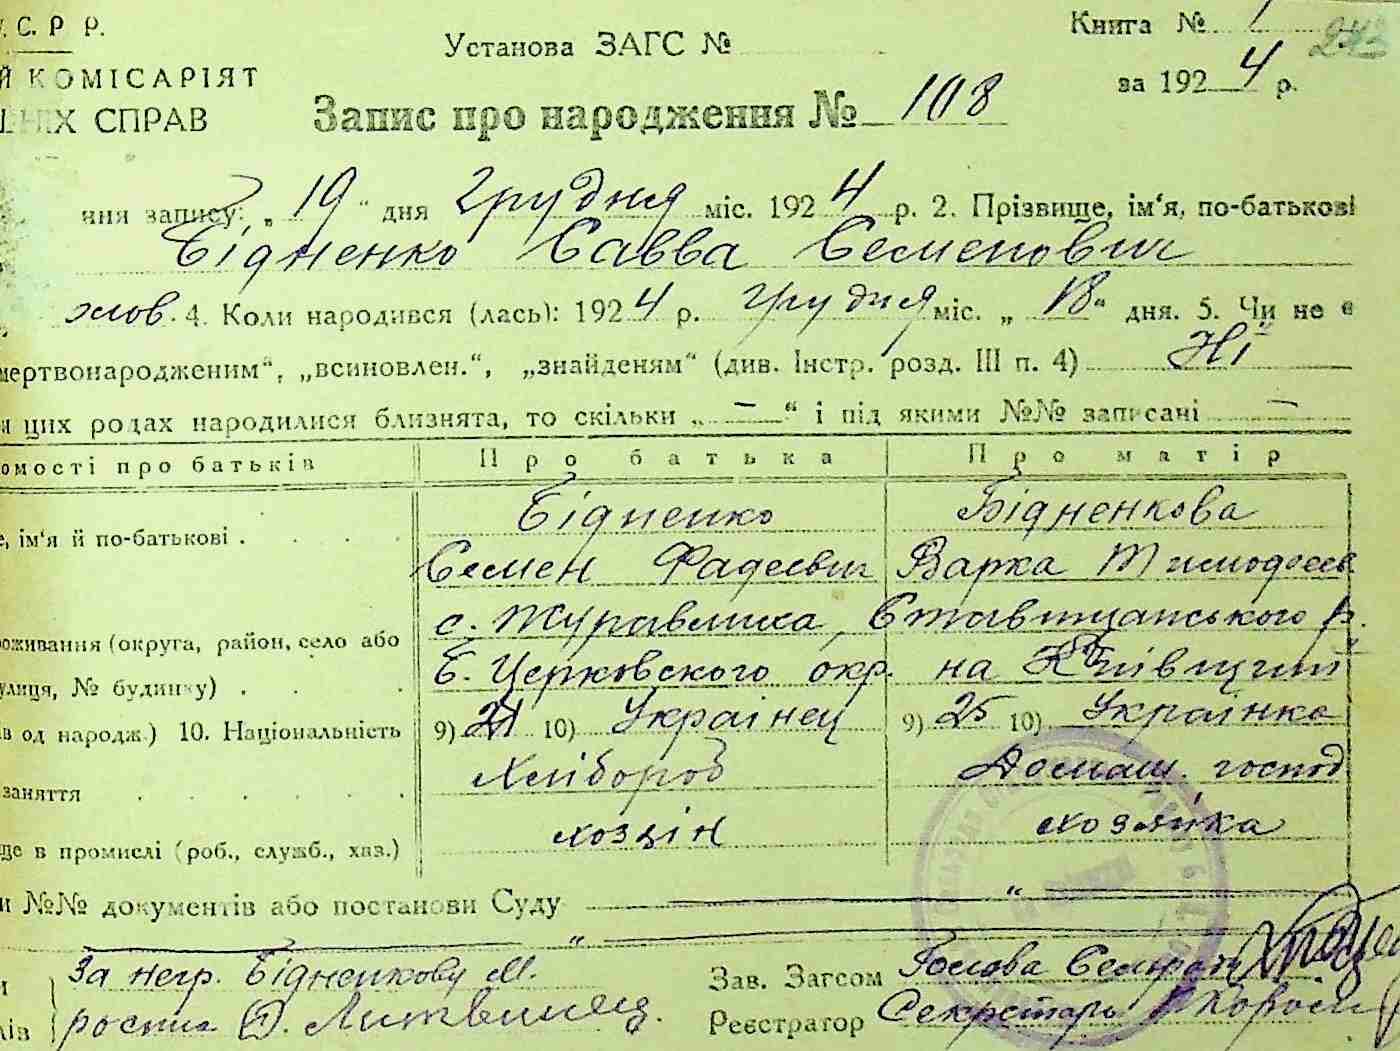 У. С. Р Р.
Установа ЗАГС №
Книга № 1
243
Й КОМІСАРІЯТ
за 1924 р.
ІХ СПРАВ
Запис про народження № 108
ння запису: „19“ дня Грудня міс. 1924 р. 2. Прізвище, ім'я, по-батькові
Бідненко Савва Семенович
жлов. 4. Коли народився (лась): 1924 р. Грудня міс. „18“ дня. 5. Чи не є
мертвонародженим“, „всиновлен.“, „знайденям“ (див. Інстр. розд. III п. 4) Ні
и цих родах народилися близнята, то скільки „—“ і під якими №№ записані —
омості про батьків Про батька Про матір
Бідненко Бідненкова
е, ім'я й по-батькові .
Семен Фадеєвич Варка Тимофеев
с. Журавлиха, Ставищанського р.
оживання (округа, район, село або
Б. Церковського окр. на Київщині
улиця, № будинку) .
ів од народж.) 10. Національність 9) 21 10) Украінец 9) 25 10) Украінка
Хлібороб Домаш. господ
заняття
хозяін хозяйка
ще в промислі (роб., служб., хаз.)
и №№ документів або постанови Суду — „ —
— „ —
За негр. Бідненкову М. Зав. Загсом Голова
росписа Литвинец. Реєстратор Секретарь